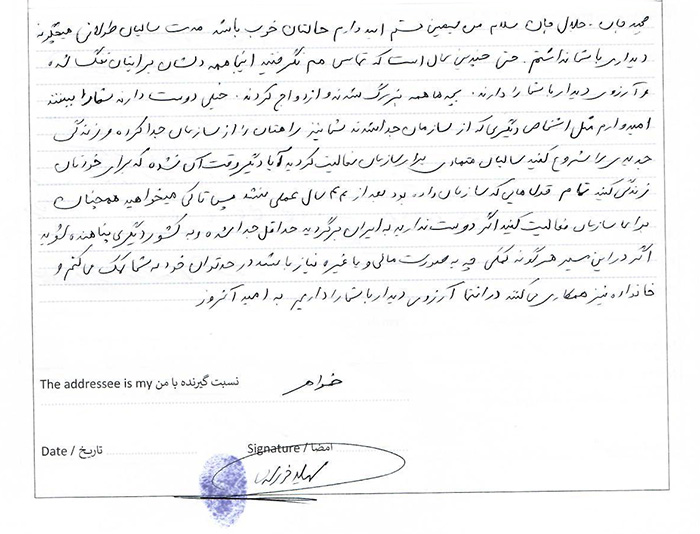 مجید جان . جلال جان سلام من سیمین هستم امیدوارم حالتان خوب باشد مدت سالیان طولانی هیچگونه
دیداری با شما نداشتم . حتی چندین سال است که تماسی هم نگرفتید اینجا همه دلشان برایتان تنگ شده
و آرزوی دیدار با شما را دارند . بچه ها همه بزرگ شدند و ازدواج کردند . خیلی دوست دارند شما را ببینند
امیدوارم مثل اشخاص دیگری که از سازمان جدا شدند شما نیز راهتان را از سازمان جدا کرده و زندگی
جدیدی را شروع کنید سالیان متمادی برا سازمان فعالیت کردید آیا دیگر وقت آن نشده که برای خودتان
زندگی کنید تمام قولهایی که سازمان داده بود بعد از ۴۰ سال عملی نشد پس تا کی میخواهید همچنان
برای سازمان فعالیت کنید اگر دوست ندارید به ایران برگردید حداقل جدا شده و به کشور دیگری پناهنده شوید
اگر در این مسیر هرگونه کمکی چه به صورت مالی و یا غیره نیاز باشد در حد توان خود به شما کمک می کنم و
خانواده نیز همکاری می کنند در انتها آرزوی دیدار با شما را داریم به امید آنروز
The addressee is my نسبت گیرنده با من خواهر
Date / تاریخ Signature / امضا